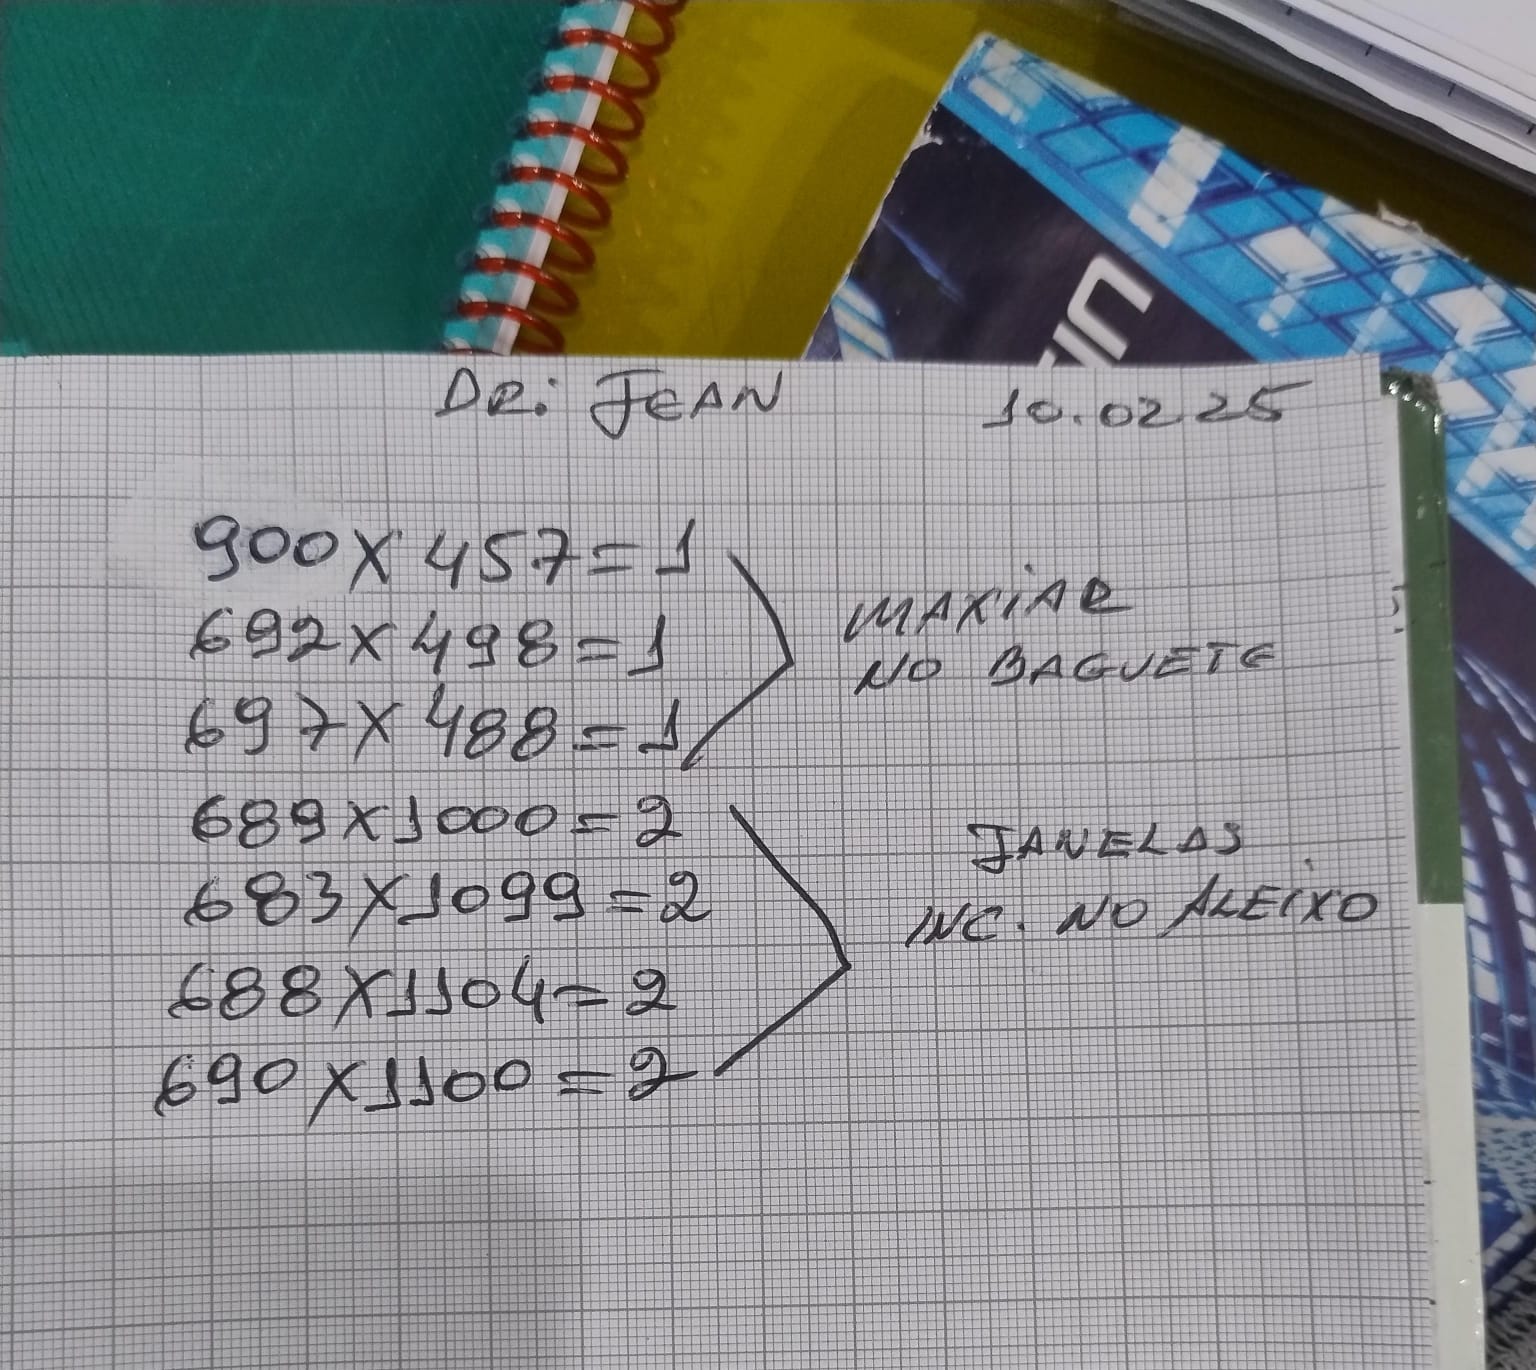 DR: JEAN 10.02.25
900X457=1
692X498=1
697X488=1
MAXiAR
NO BAGUETE
689X1000=2
683X1099=2
688X1104=2
690X1100=2
JANELAS
INC. NO ALEiXO